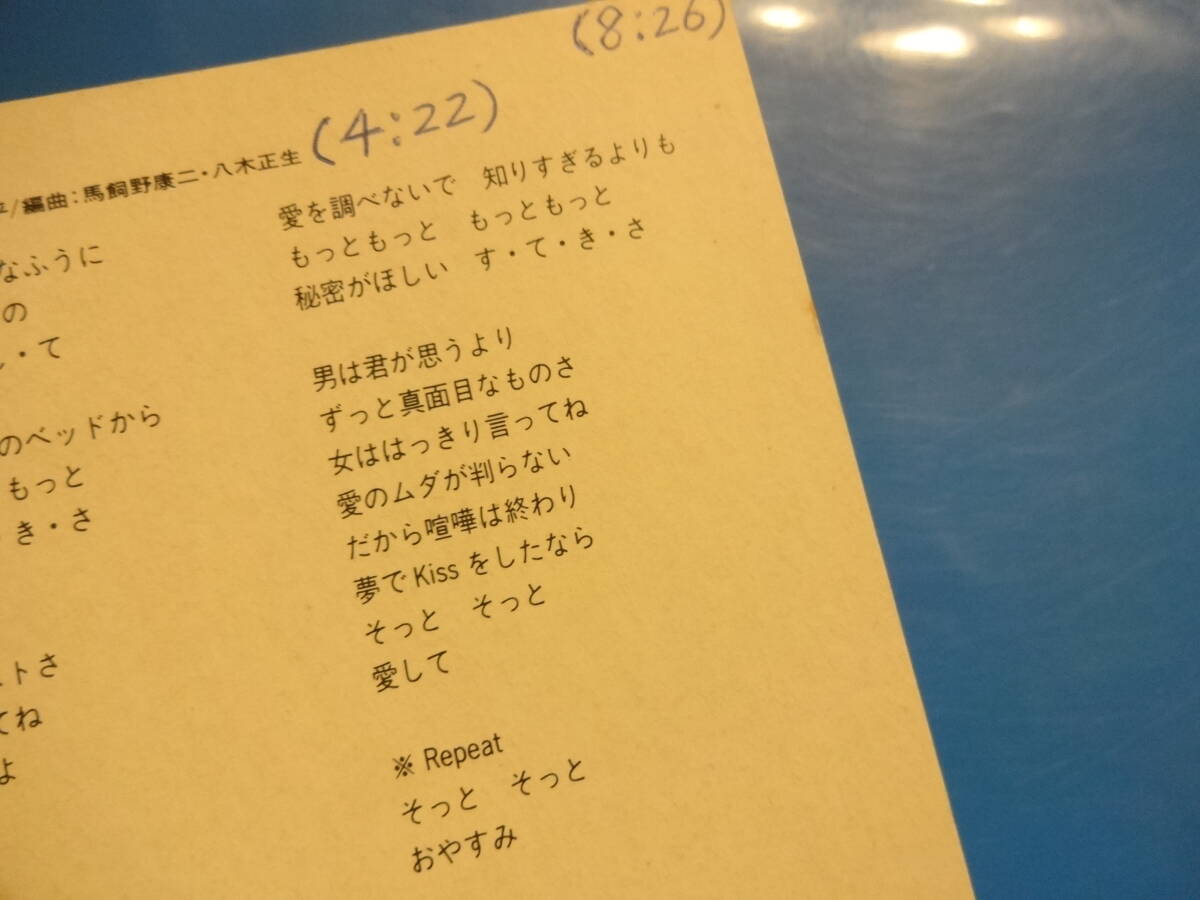 (8:26)
(4:22)
/編曲:馬飼野康二・八木正生
なふうに
の
・て
のベッドから
もっと
き・さ
トさ
てね
よ
愛を調べないで 知りすぎるよりも
もっともっと もっともっと
秘密がほしい す・て・き・さ
男は君が思うより
ずっと真面目なものさ
女ははっきり言ってね
愛のムダが判らない
だから喧嘩は終わり
夢でKissをしたなら
そっと そっと
愛して
※Repeat
そっと そっと
おやすみ